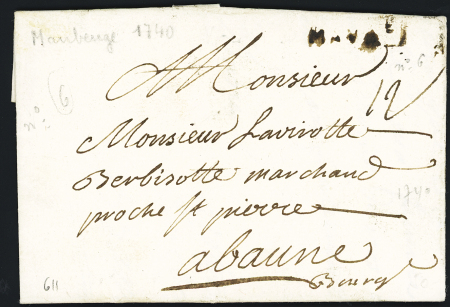 Maubeuge 1740
n° 6
6
n°
12
A Monsieur
Monsieur Lavirotte
Berbisotte marchand
proche st pierre
1740
abaune
Bourg
611